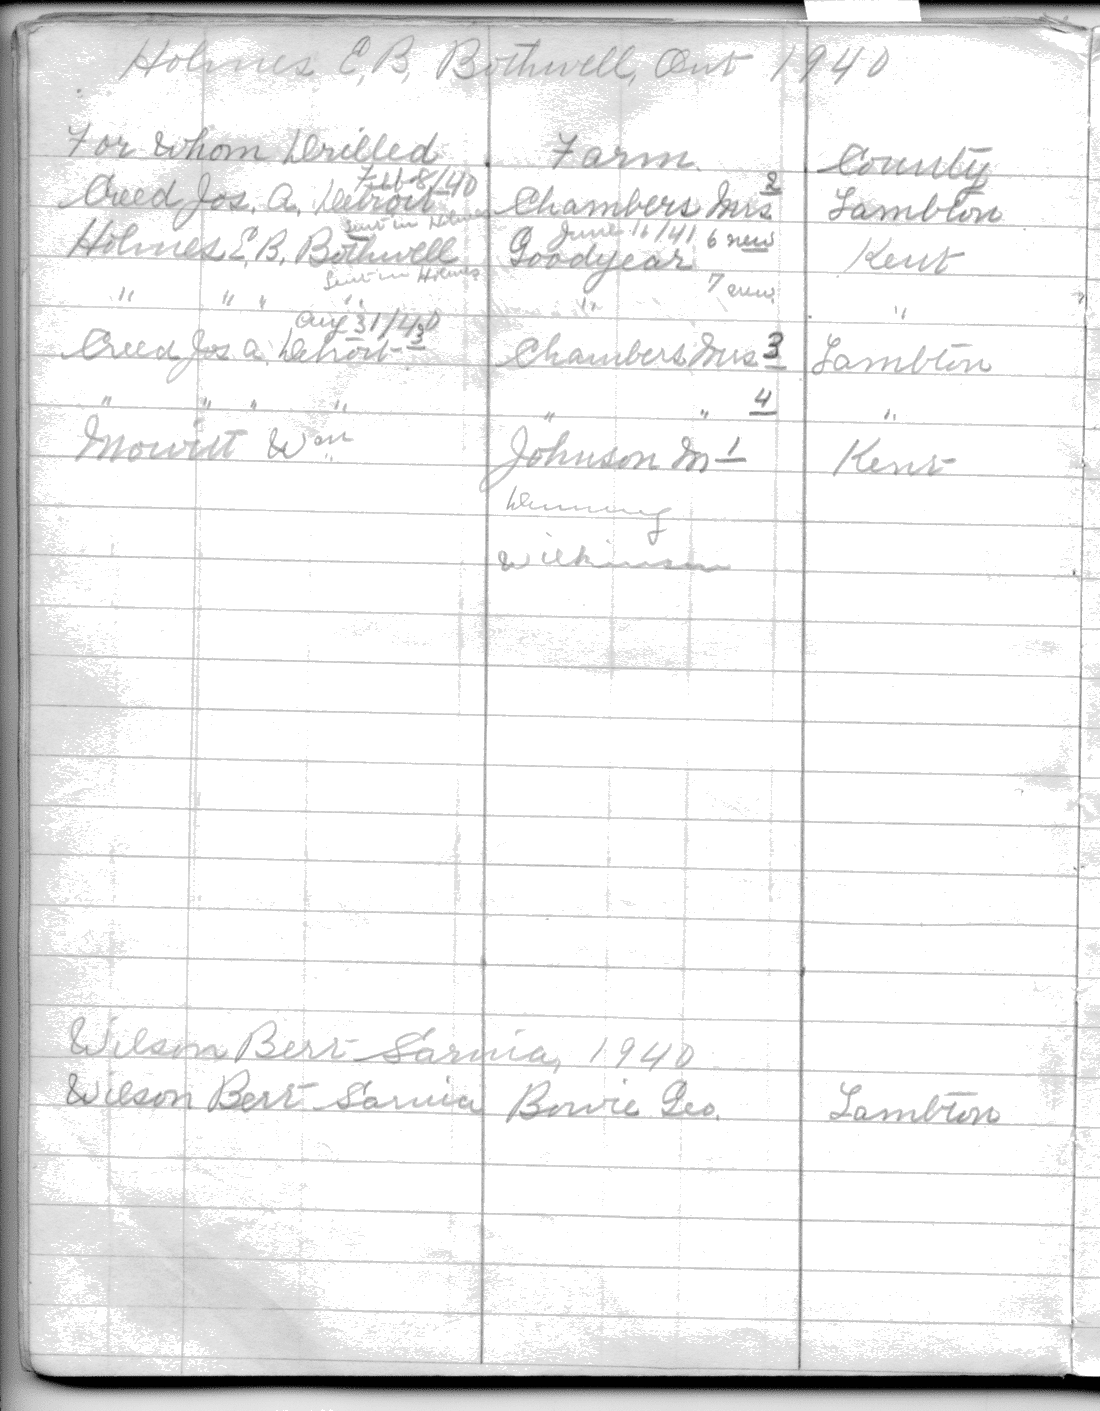 Holmes E. B. Bothwell, Ont 1940
For Whom Drilled Farm. County
Feb 8/40 2
Creed Jos. A. Detroit Chambers Mrs Lambton
Sent in Holmes June 16/41 6 new
Holmes E. B. Bothwell Goodyear Kent
Sent in Holmes 7 new
" " " " " "
Aug 31/40
Creed Jos A. Detroit 3 Chambers Mrs 3 Lambton
" " " " " " 4 "
Mowitt Wm Johnson M 1 Kent
Denning
Wilkinson
Wilson Bert Sarnia, 1940
Wilson Bert Sarnia Bowie Geo. Lambton